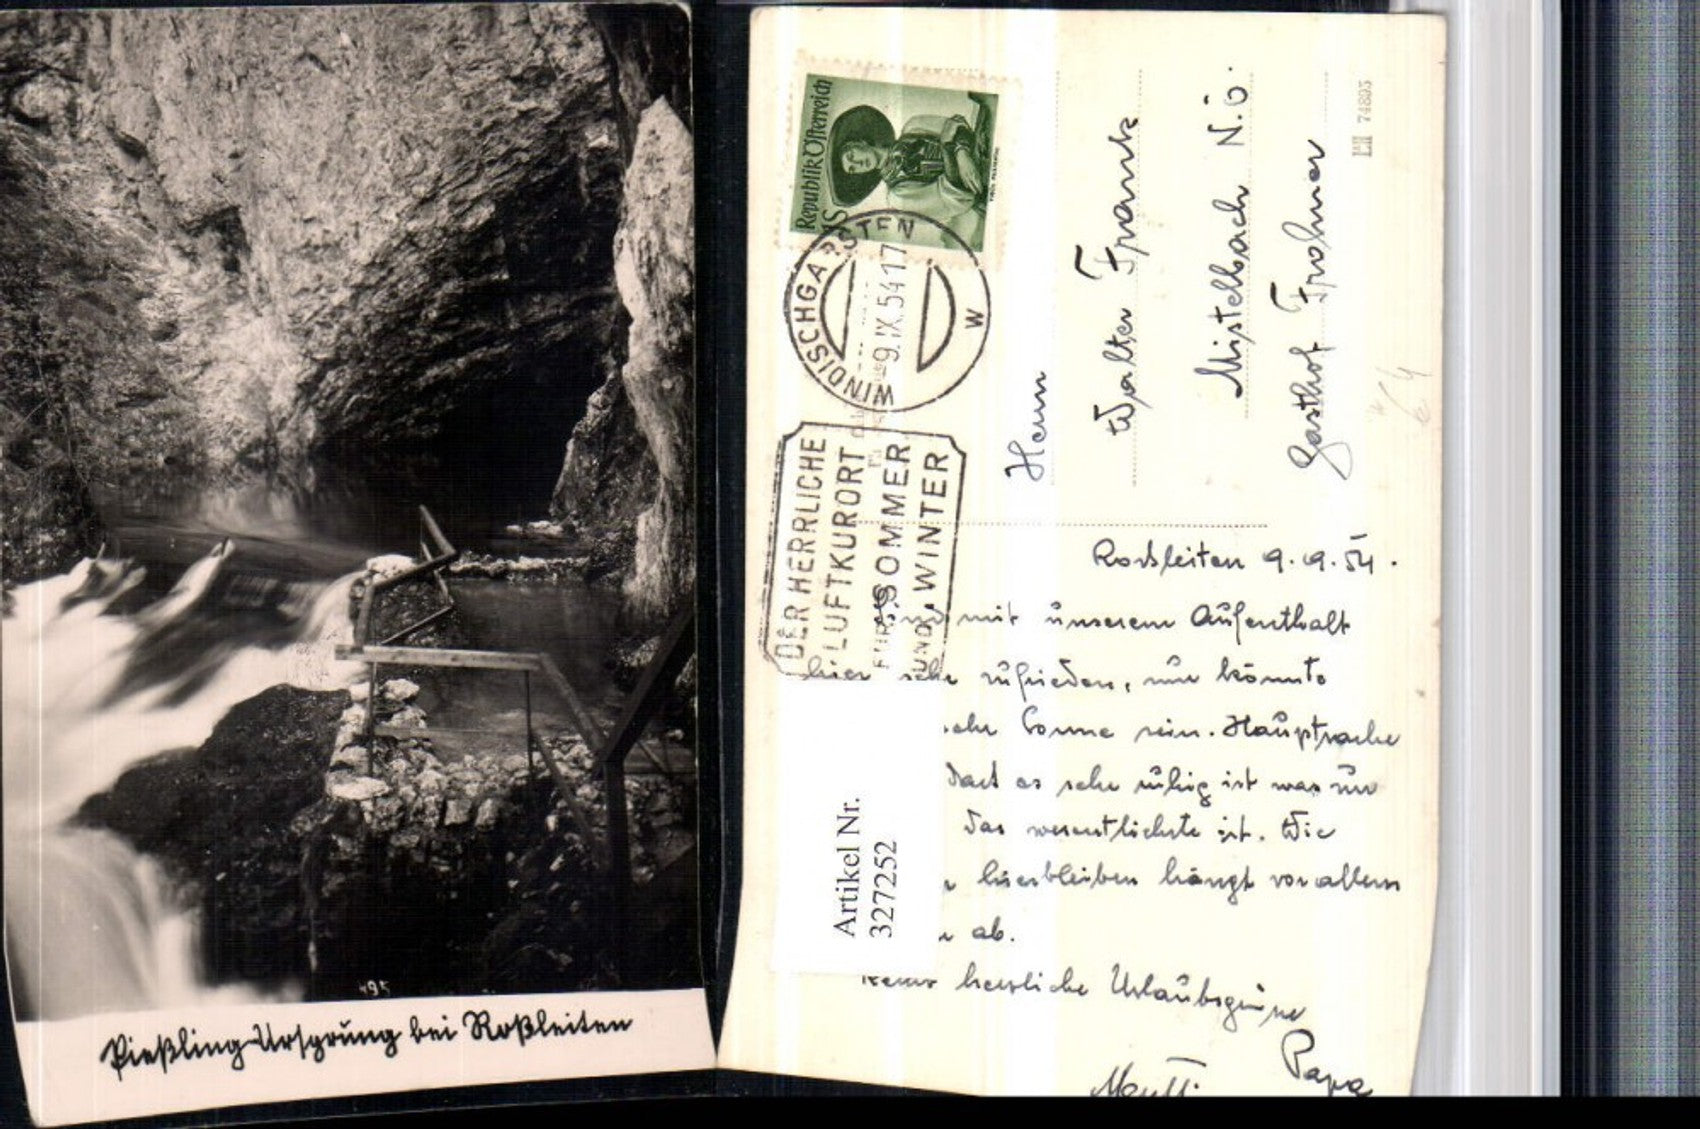 495
Pießling-Ursprung bei Roßleiten
Republik Österreich
WINDISCHGARSTEN
-9.IX.54 17
W
DER HERRLICHE
LUFTKURORT
FÜR SOMMER
UND WINTER
Herrn
Walter Frank
Mistelbach N.Ö.
Gasthof Frohner
74893
Rossleiten 9.9.54.
mit unserem Aufenthalt
hier sehr zufrieden, nur könnte
mehr Sonne sein. Hauptsache
dass es sehr ruhig ist was nur
das wesentlichste ist. Wie
hierbleiben hängt vor allem
ab.
herzliche Urlaubsgrüsse
Papa
Mutti
Artikel Nr.
3272252